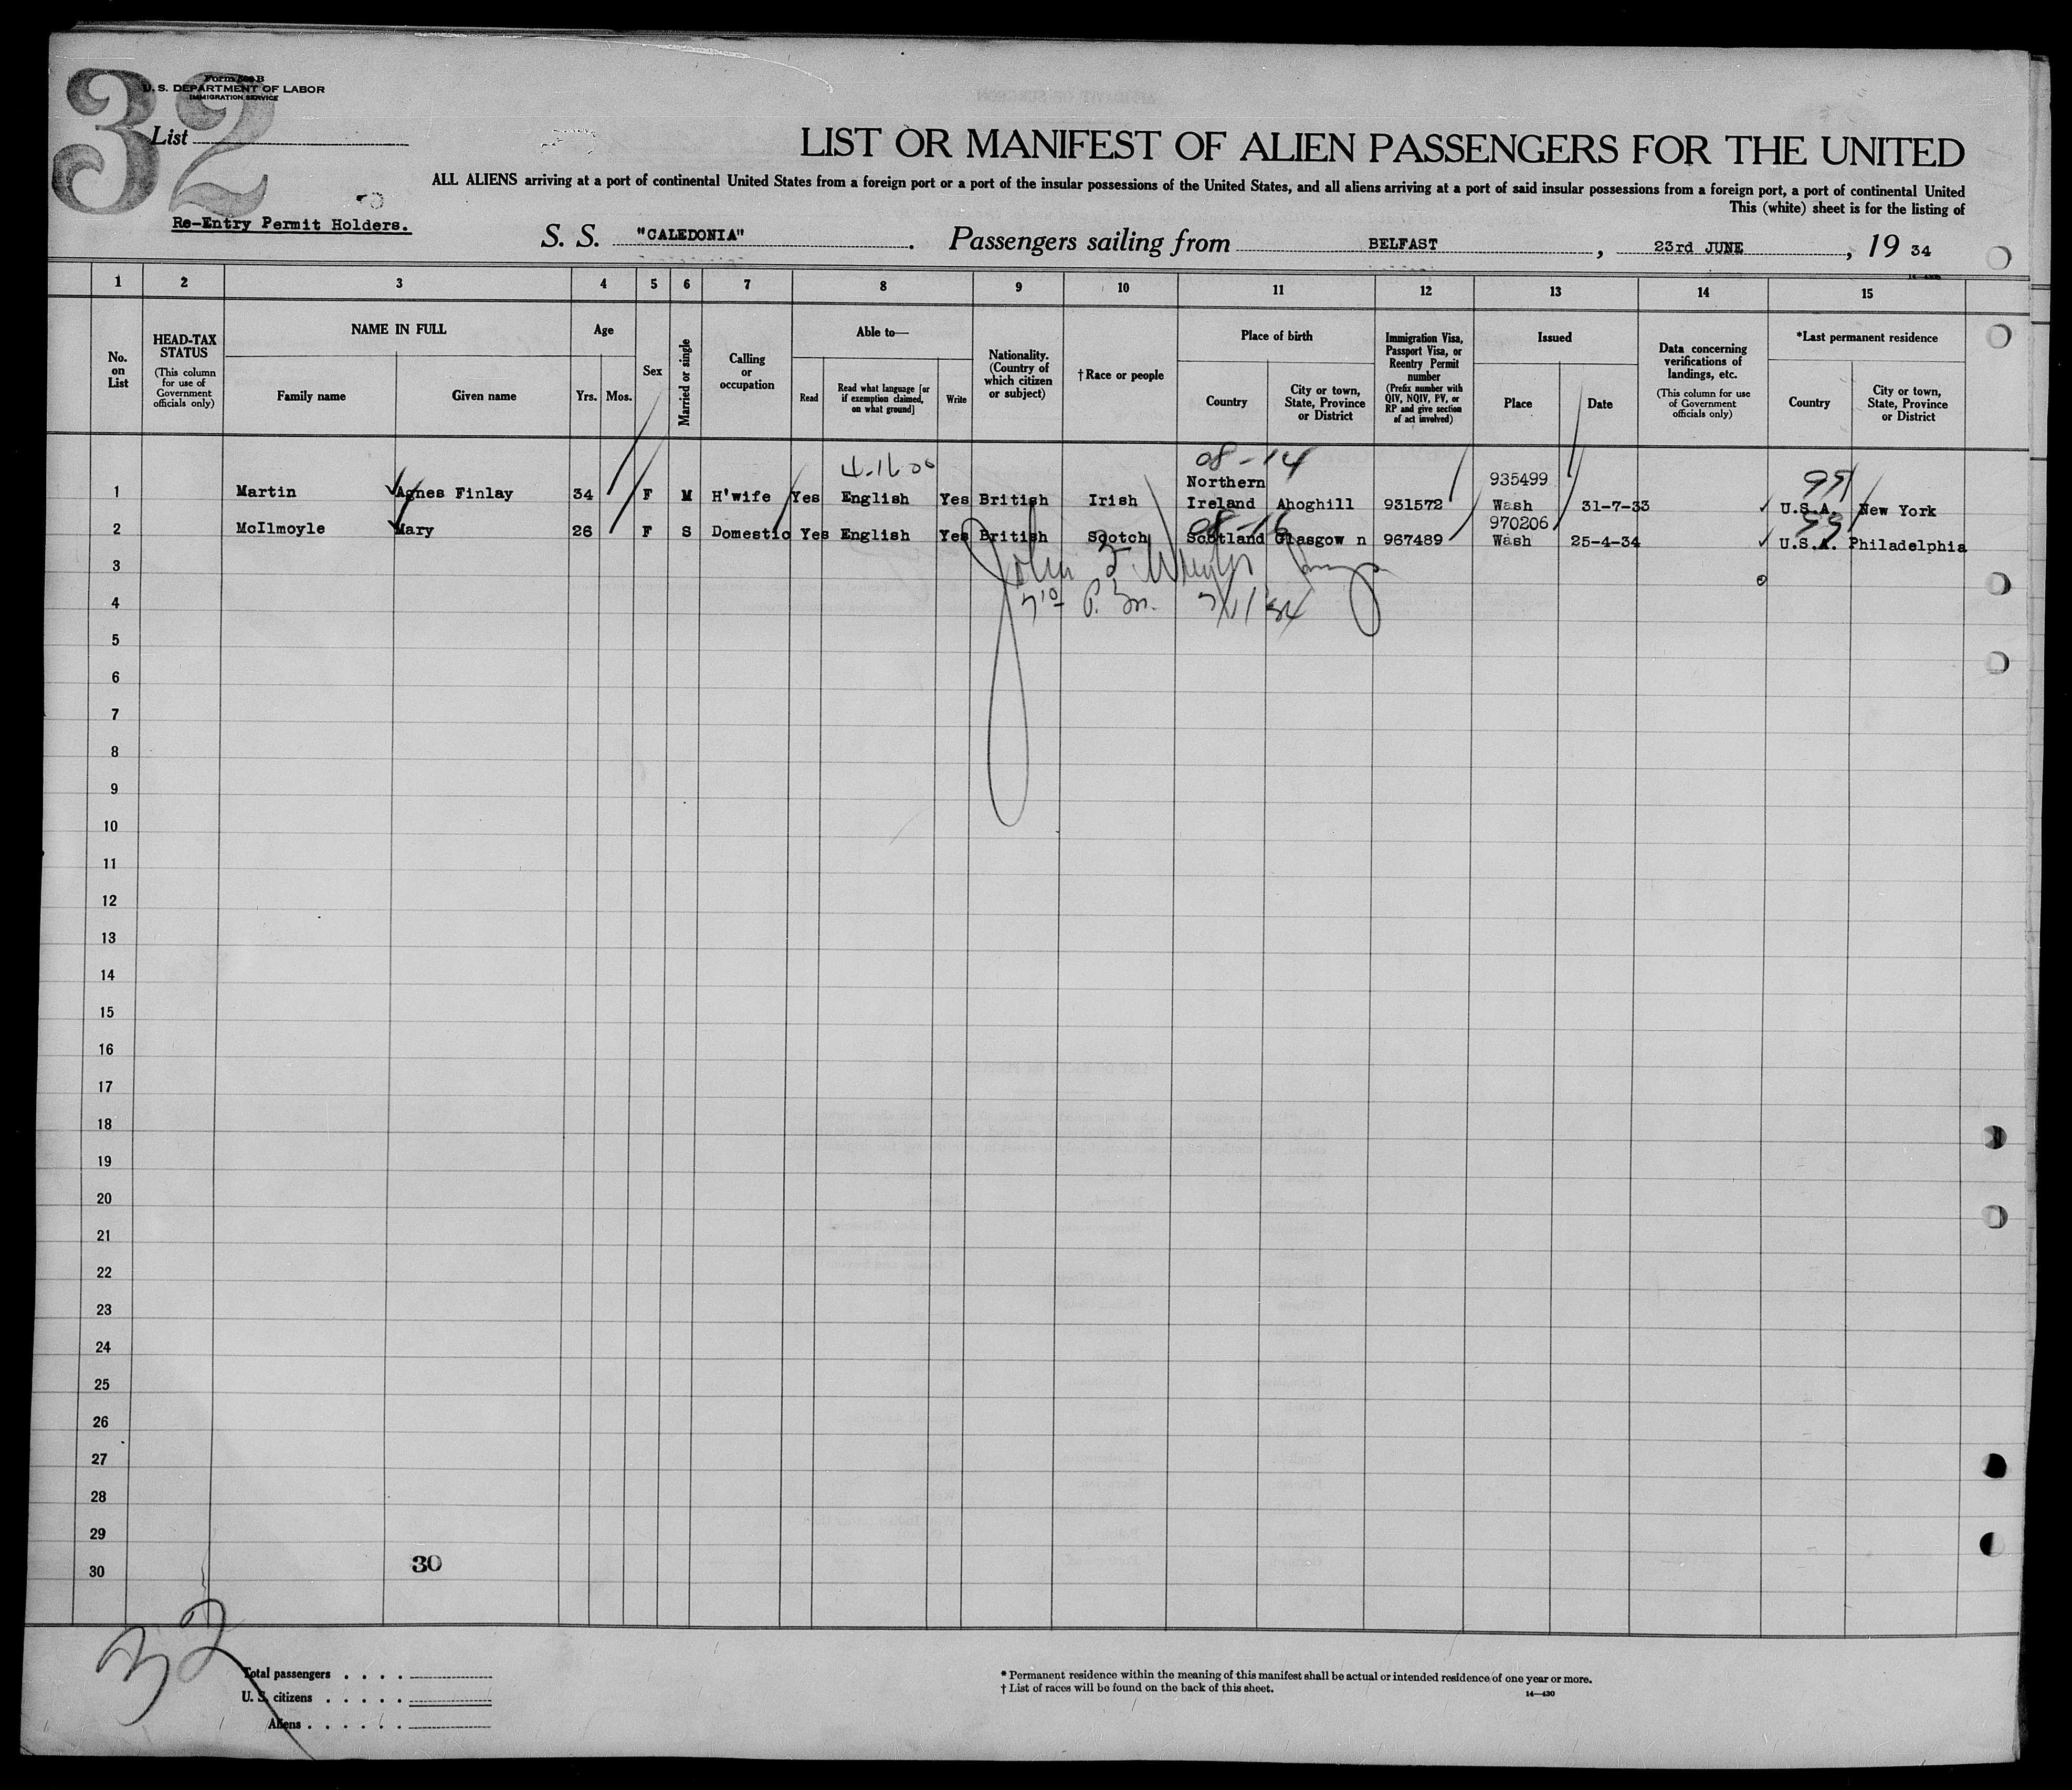 32
Form 500 B
U. S. DEPARTMENT OF LABOR
IMMIGRATION SERVICE
List
LIST OR MANIFEST OF ALIEN PASSENGERS FOR THE UNITED
ALL ALIENS arriving at a port of continental United States from a foreign port or a port of the insular possessions of the United States, and all aliens arriving at a port of said insular possessions from a foreign port, a port of continental United
This (white) sheet is for the listing of
Re-Entry Permit Holders.
S. S. "CALEDONIA". Passengers sailing from BELFAST, 23rd JUNE, 19 34
1 2 3 4 5 6 7 8 9 10 11 12 13 14 15
No. on List
HEAD-TAX STATUS (This column for use of Government officials only)
NAME IN FULL
Family name Given name
Age
Yrs. Mos.
Sex
Married or single
Calling or occupation
Able to—
Read Read what language [or if exemption claimed, on what ground] Write
Nationality. (Country of which citizen or subject)
†Race or people
Place of birth
Country City or town, State, Province or District
Immigration Visa, Passport Visa, or Reentry Permit number (Prefix number with QIV, NQIV, PV, or RP and give section of act involved)
Issued
Place Date
Data concerning verifications of landings, etc. (This column for use of Government officials only)
*Last permanent residence
Country City or town, State, Province or District
08-14
99
1 Martin Agnes Finlay 34 F M H'wife Yes English Yes British Irish Northern Ireland Ahoghill 931572 935499 Wash 31-7-33 U.S.A. New York
08-16
99
2 McIlmoyle Mary 26 F S Domestic Yes English Yes British Scotch Scotland Glasgow n 967489 970206 Wash 25-4-34 U.S.A. Philadelphia
3
4
5
6
7
8
9
10
11
12
13
14
15
16
17
18
19
20
21
22
23
24
25
26
27
28
29
30
30
32
Total passengers
U. S. citizens
Aliens
* Permanent residence within the meaning of this manifest shall be actual or intended residence of one year or more.
† List of races will be found on the back of this sheet.
14—430